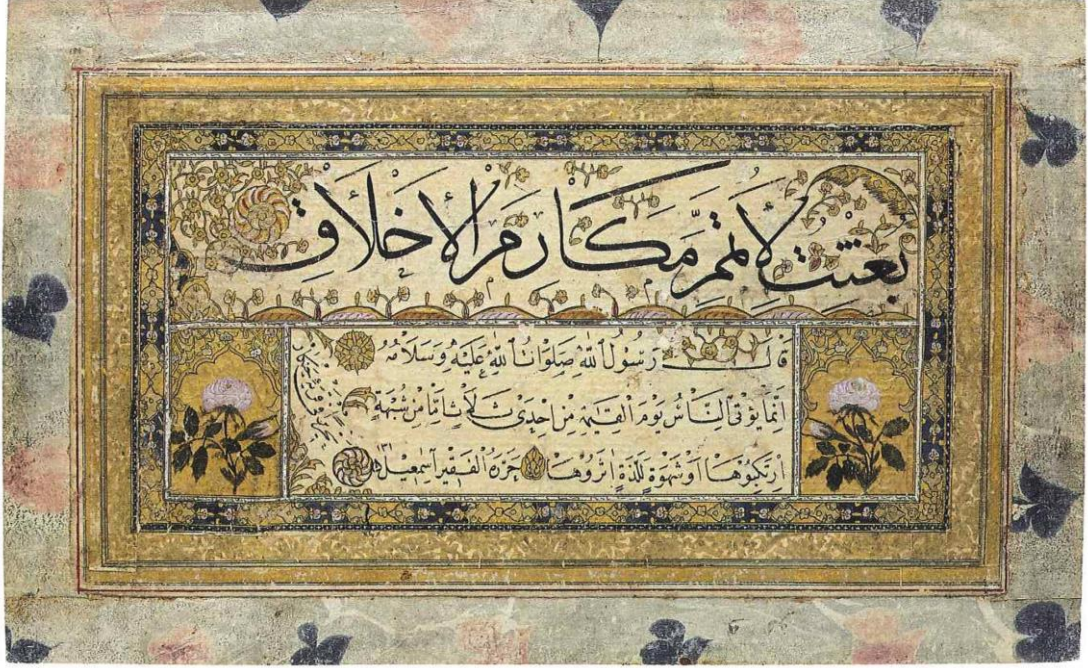 بُعِثْتُ لِأُتَمِّمَ مَكَارِمَ الْأَخْلَاقِ
قَالَ رَسُولُ اللهِ صَلَوَاتُ اللهِ عَلَيْهِ وَسَلَامُهُ
اِنَّمَا يُؤْتَى النَّاسُ يَوْمَ الْقِيٰمَةِ مِنْ اِحْدَى ثَلَاثٍ اِمَّا مِنْ شُبْهَةٍ
اِرْتَكَبُوهَا اَوْ شَهْوَةٍ لِلَذَّةٍ اٰثَرُوهَا حَرَّرَهُ الْفَقِيرُ اِسْمٰعِيلُ